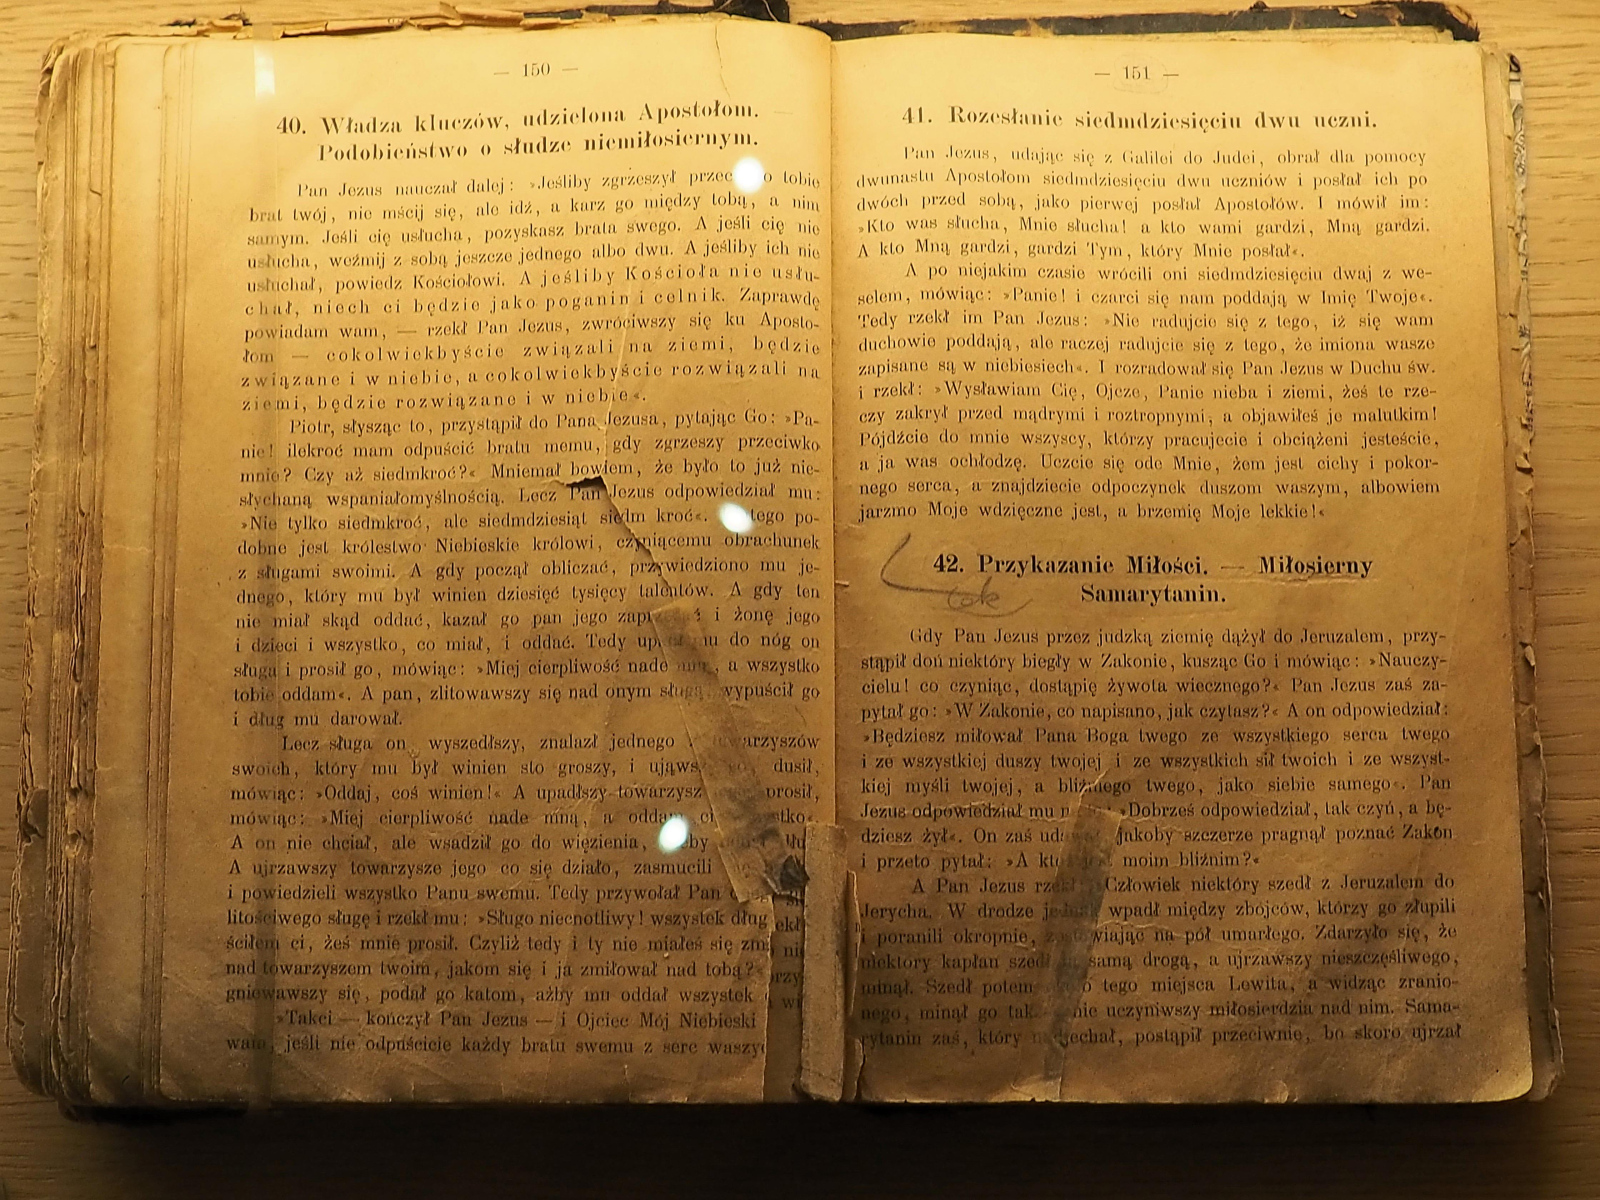 — 150 —
40. Władza kluczów, udzielona Apostołom.
Podobieństwo o słudze niemiłosiernym.
Pan Jezus nauczał dalej: »Jeśliby zgrzeszył tobie
brat twój, nie mścij się, ale idź, a karz go między tobą, a nim
samym. Jeśli cię usłucha, pozyskasz brata swego. A jeśli cię nie
usłucha, weźmij z sobą jeszcze jednego albo dwu. A jeśliby ich nie
usłuchał, powiedz Kościołowi. A jeśliby Kościoła nie usłu-
chał, niech ci będzie jako poganin i celnik. Zaprawdę
powiadam wam, — rzekł Pan Jezus, zwróciwszy się ku Aposto-
łom — cokolwiekbyście związali na ziemi, będzie
związane i w niebie, a cokolwiekbyście rozwiązali na
ziemi, będzie rozwiązane i w niebie«.
Piotr, słysząc to, przystąpił do Pana Jezusa, pytając Go: »Pa-
nie! ilekroć mam odpuścić bratu memu, gdy zgrzeszy przeciwko
mnie? Czy aż siedmkroć?« Mniemał bowiem, że było to już nie-
słychaną wspaniałomyślnością. Lecz Pan Jezus odpowiedział mu:
»Nie tylko siedmkroć, ale siedmdziesiąt siedm kroć«. tego po-
dobne jest królestwo Niebieskie królowi, czyniącemu obrachunek
z sługami swoimi. A gdy począł obliczać, przywiedziono mu je-
dnego, który mu był winien dziesięć tysięcy talentów. A gdy ten
nie miał skąd oddać, kazał go pan jego i żonę jego
i dzieci i wszystko, co miał, i oddać. Tedy mu do nóg on
sługa i prosił go, mówiąc: »Miej cierpliwość nade mną, a wszystko
tobie oddam«. A pan, zlitowawszy się nad onym sługą, wypuścił go
i dług mu darował.
Lecz sługa on wyszedłszy, znalazł jednego
swoich, który mu był winien sto groszy, i dusił,
mówiąc: »Oddaj, coś winien!« A upadłszy towarzysz prosił,
mówiąc: »Miej cierpliwość nade mną, a oddam
A on nie chciał, ale wsadził go do więzienia,
A ujrzawszy towarzysze jego co się działo, zasmucili
i powiedzieli wszystko Panu swemu. Tedy przywołał Pan
litościwego sługę i rzekł mu: »Sługo niecnotliwy! wszystek dług
ściłem ci, żeś mnie prosił. Czyliż tedy i ty nie miałeś się
nad towarzyszem twoim, jakom się i ja zmiłował nad tobą?«
gniewawszy się, podał go katom, ażby mu oddał wszystek
»Takci — kończył Pan Jezus — i Ojciec Mój Niebieski
wam, jeśli nie odpuścicie każdy bratu swemu z serc
— 151 —
41. Rozesłanie siedmdziesięciu dwu uczni.
Pan Jezus, udając się z Galilei do Judei, obrał dla pomocy
dwunastu Apostołom siedmdziesięciu dwu uczniów i posłał ich po
dwóch przed sobą, jako pierwej posłał Apostołów. I mówił im:
»Kto was słucha, Mnie słucha! a kto wami gardzi, Mną gardzi.
A kto Mną gardzi, gardzi Tym, który Mnie posłał«.
A po niejakim czasie wrócili oni siedmdziesięciu dwaj z we-
selem, mówiąc: »Panie! i czarci się nam poddają w Imię Twoje«.
Tedy rzekł im Pan Jezus: »Nie radujcie się z tego, iż się wam
duchowie poddają, ale raczej radujcie się z tego, że imiona wasze
zapisane są w niebiesiech«. I rozradował się Pan Jezus w Duchu św.
i rzekł: »Wysławiam Cię, Ojcze, Panie nieba i ziemi, żeś te rze-
czy zakrył przed mądrymi i roztropnymi, a objawiłeś je malutkim!
Pójdźcie do mnie wszyscy, którzy pracujecie i obciążeni jesteście,
a ja was ochłodzę. Uczcie się ode Mnie, żem jest cichy i pokor-
nego serca, a znajdziecie odpoczynek duszom waszym, albowiem
jarzmo Moje wdzięczne jest, a brzemię Moje lekkie!«
42. Przykazanie Miłości. — Miłosierny
Samarytanin.
Gdy Pan Jezus przez judzką ziemię dążył do Jeruzalem, przy-
stąpił doń niektóry biegły w Zakonie, kusząc Go i mówiąc: »Nauczy-
cielu! co czyniąc, dostąpię żywota wiecznego?« Pan Jezus zaś za-
pytał go: »W Zakonie, co napisano, jak czytasz?« A on odpowiedział:
»Będziesz miłował Pana Boga twego ze wszystkiego serca twego
i ze wszystkiej duszy twojej i ze wszystkich sił twoich i ze wszyst-
kiej myśli twojej, a bliźniego twego, jako siebie samego«. Pan
Jezus odpowiedział mu »Dobrześ odpowiedział, tak czyń, a bę-
dziesz żył«. On zaś jakoby szczerze pragnął poznać Zakon
i przeto pytał: »A kto jest moim bliźnim?«
A Pan Jezus rzekł: »Człowiek niektóry szedł z Jeruzalem do
Jerycha. W drodze jednak wpadł między zbójców, którzy go złupili
i poranili okropnie, zostawiając na pół umarłego. Zdarzyło się, że
niektóry kapłan szedł tą samą drogą, a ujrzawszy nieszczęśliwego,
minął. Szedł potem tego miejsca Lewita, a widząc zranio-
nego, minął go tak nie uczyniwszy miłosierdzia nad nim. Sama-
rytanin zaś, który jechał, postąpił przeciwnie, bo skoro ujrzał